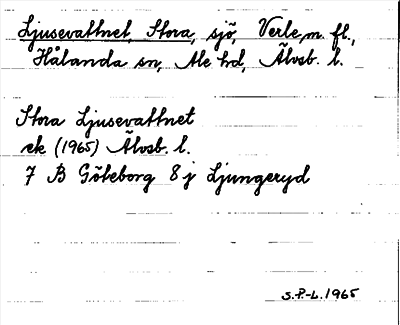 Ljusevattnet, Stora, sjö, Verle, m. fl.,
Hålanda sn, Ale hd, Älvsb. l.
Stora Ljusevattnet
ek (1965) Älvsb. l.
7 B Göteborg 8 j Ljungeryd
S.P.-L. 1965